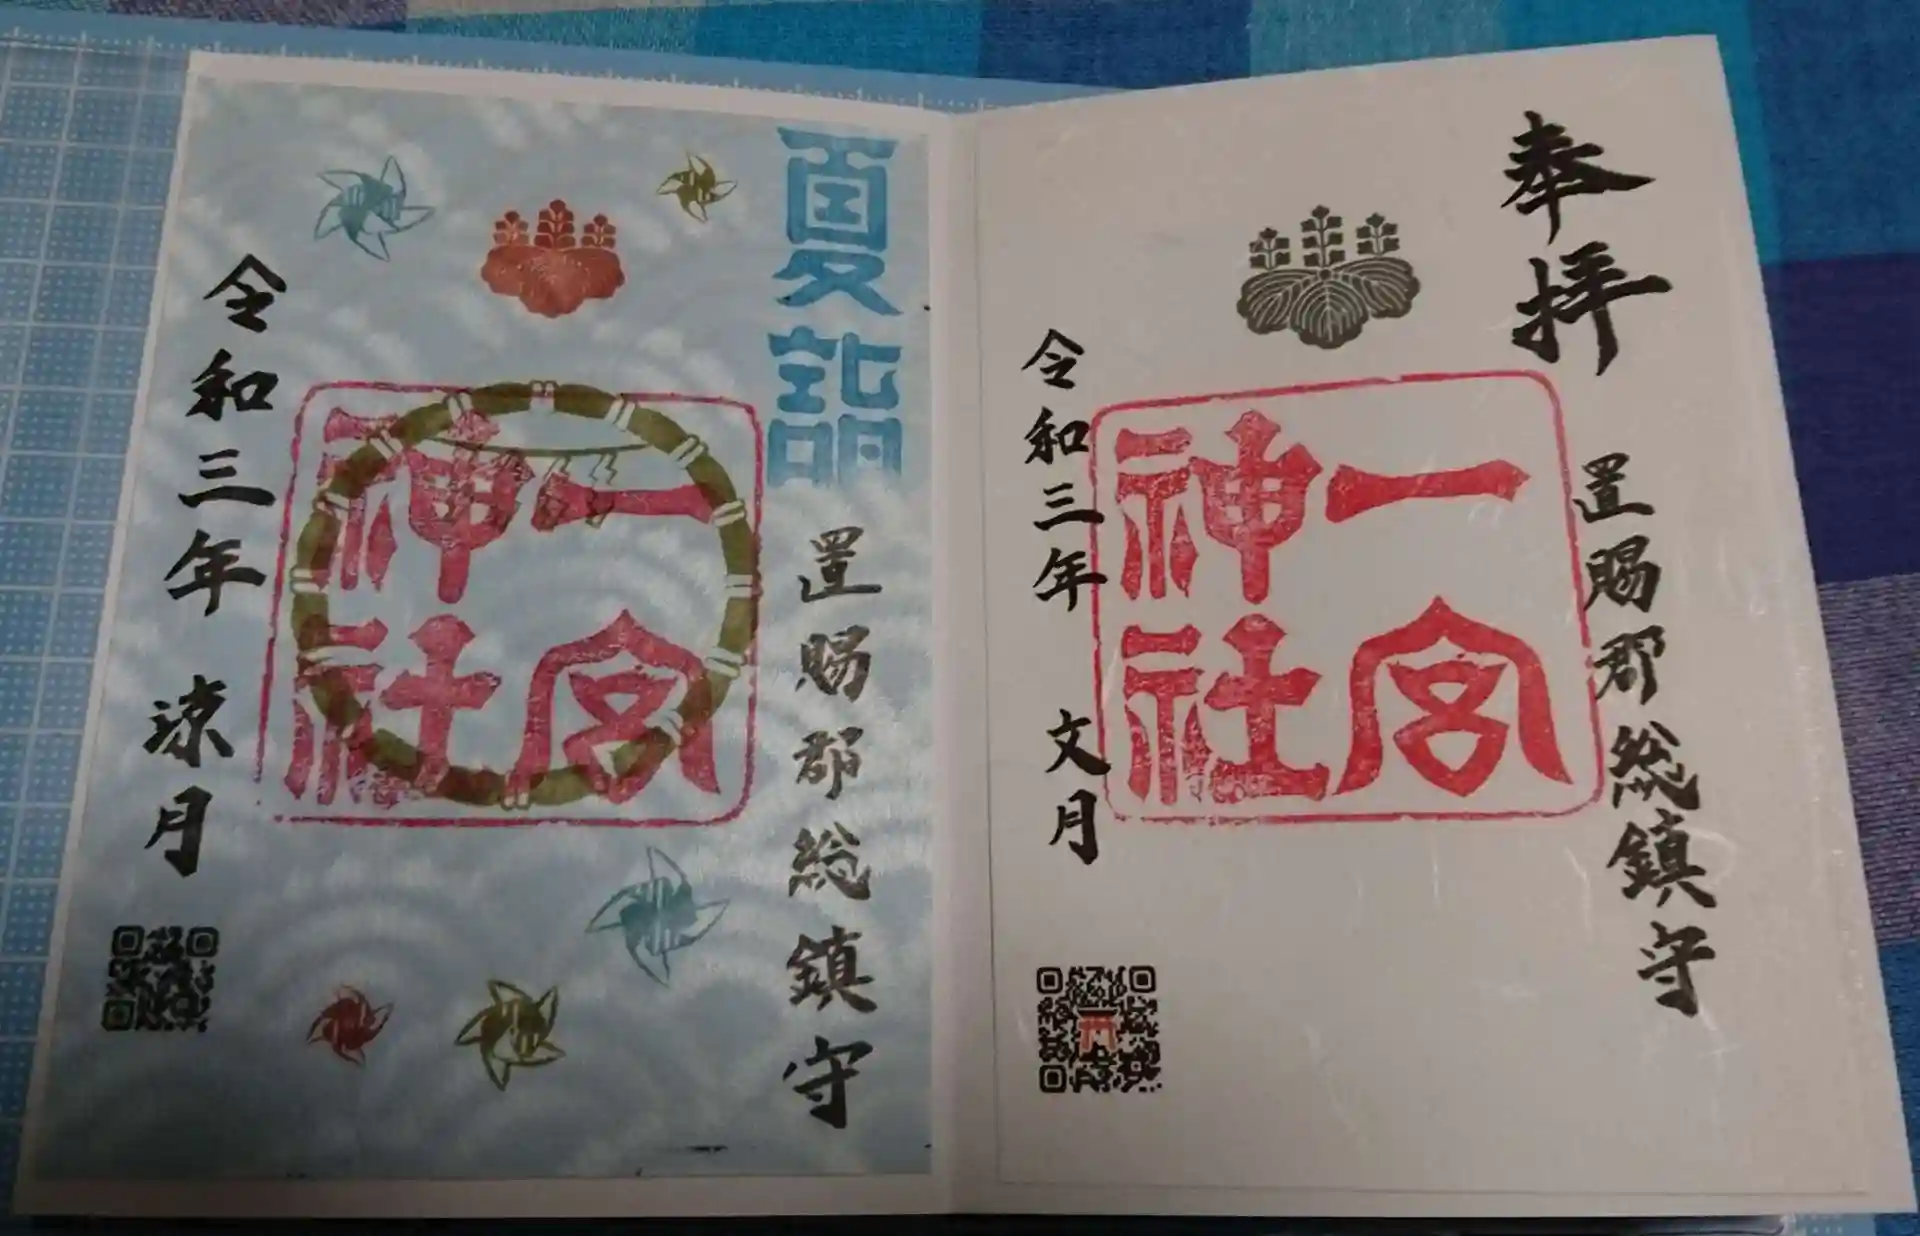 奉拝
置賜郡総鎮守
一宮
神社
令和三年 文月
夏詣
置賜郡総鎮守
一宮
神社
令和三年 涼月